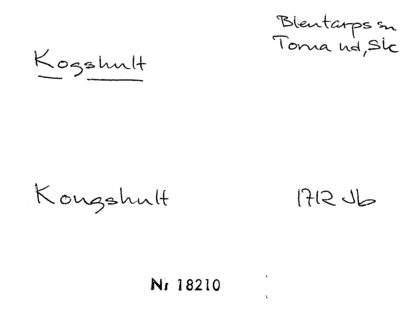 Blentarps sn
Torna hd, Sk
Kogshult
Kongshult 1712 Jb
Nr 18210